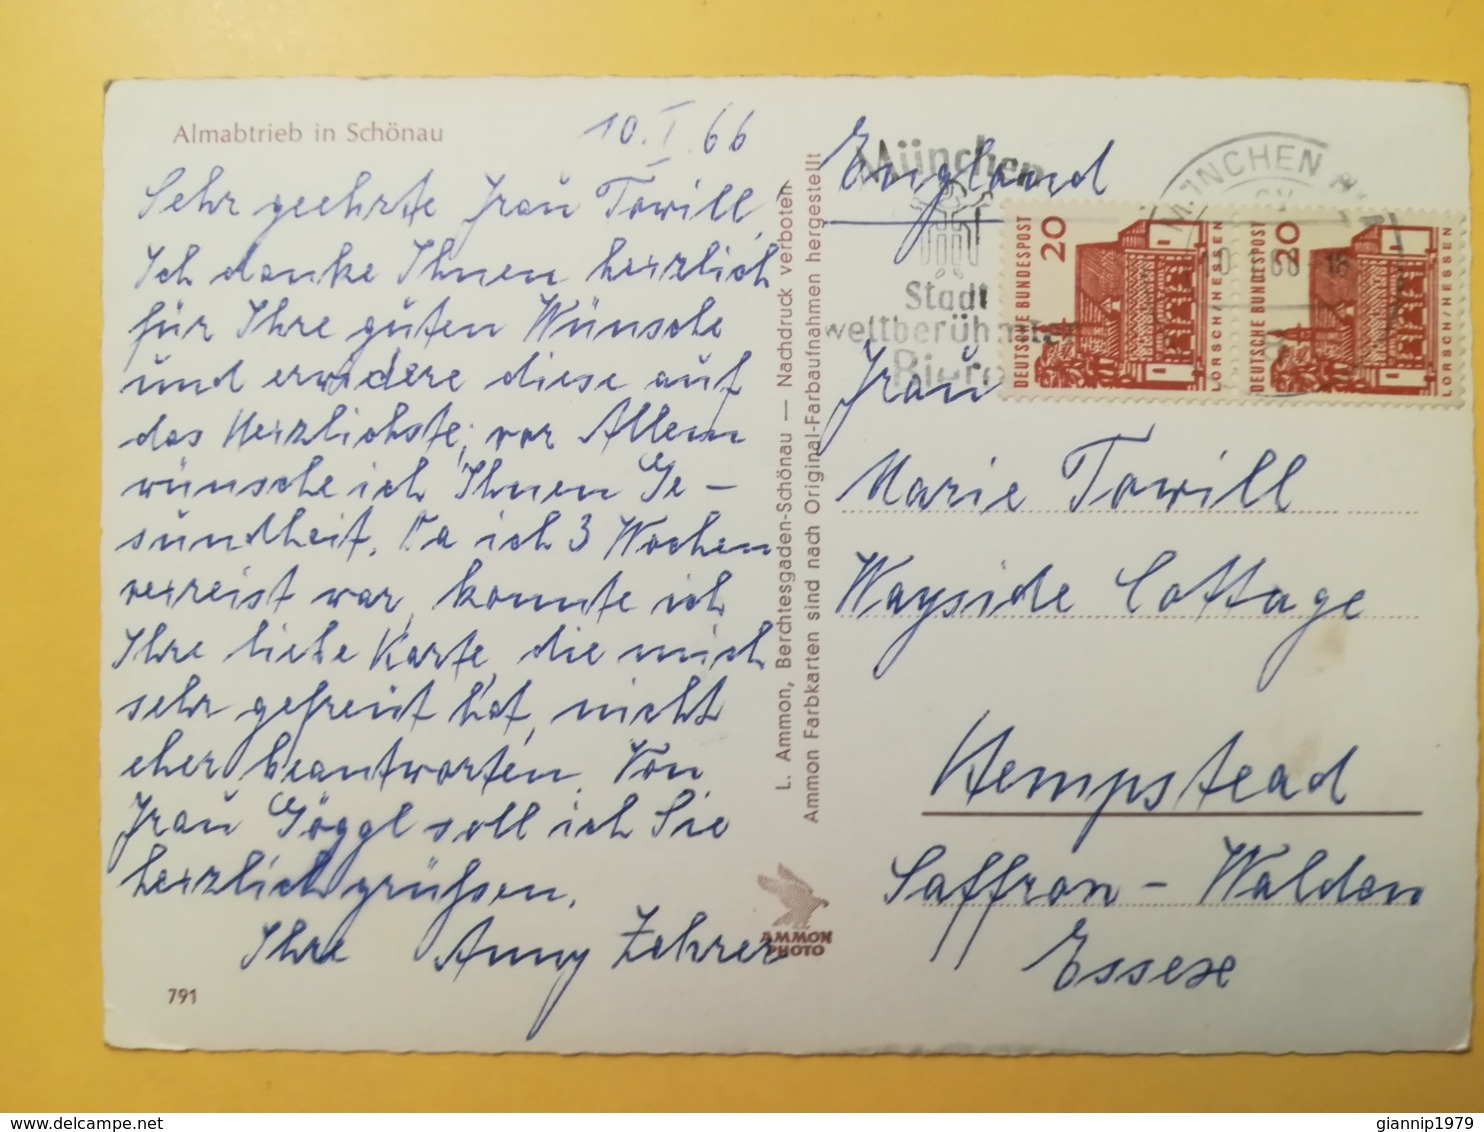 Almabtrieb in Schönau
10. I. 66
Sehr geehrte Frau Towill,
Ich danke Ihnen herzlich
für Ihre guten Wünsche
und erwidere diese auf
das Herzlichste, vor Allem
wünsche ich Ihnen Ge-
sundheit. Da ich 3 Wochen
verreist war, konnte ich
Ihre liebe Karte, die mich
sehr gefreut hat, nicht
eher beantworten. Von
Frau Göggl soll ich Sie
herzlich grüßen.
Ihre Anny Zehrer
791
L. Ammon, Berchtesgaden-Schönau — Nachdruck verboten
Ammon Farbkarten sind nach Original-Farbaufnahmen hergestellt
AMMON
PHOTO
England
München
Stadt
weltberühmter
Biere
MÜNCHEN
DEUTSCHE BUNDESPOST
20
LORSCH/HESSEN
DEUTSCHE BUNDESPOST
20
LORSCH/HESSEN
Frau
Marie Towill
Wayside Cottage
Hempstead
Saffron-Walden
Essex
giannip1979